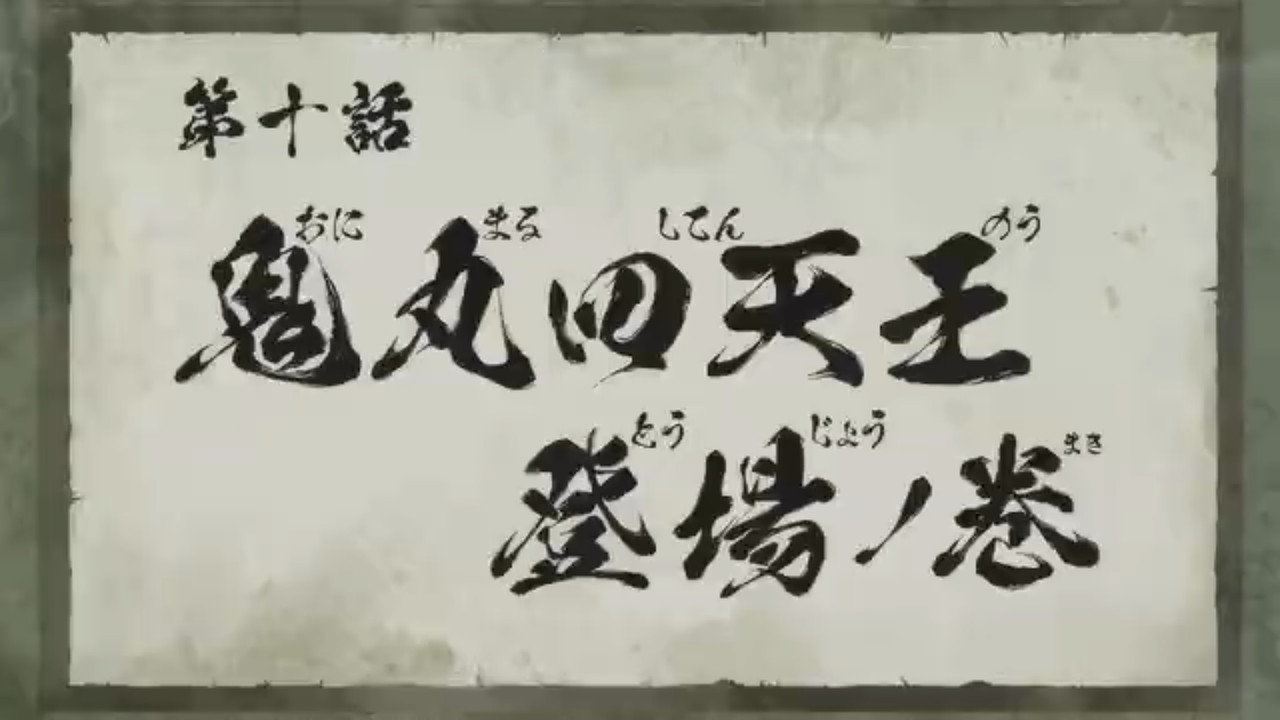 第十話
おに まる してん のう
鬼丸四天王
とう じょう まき
登場ノ巻